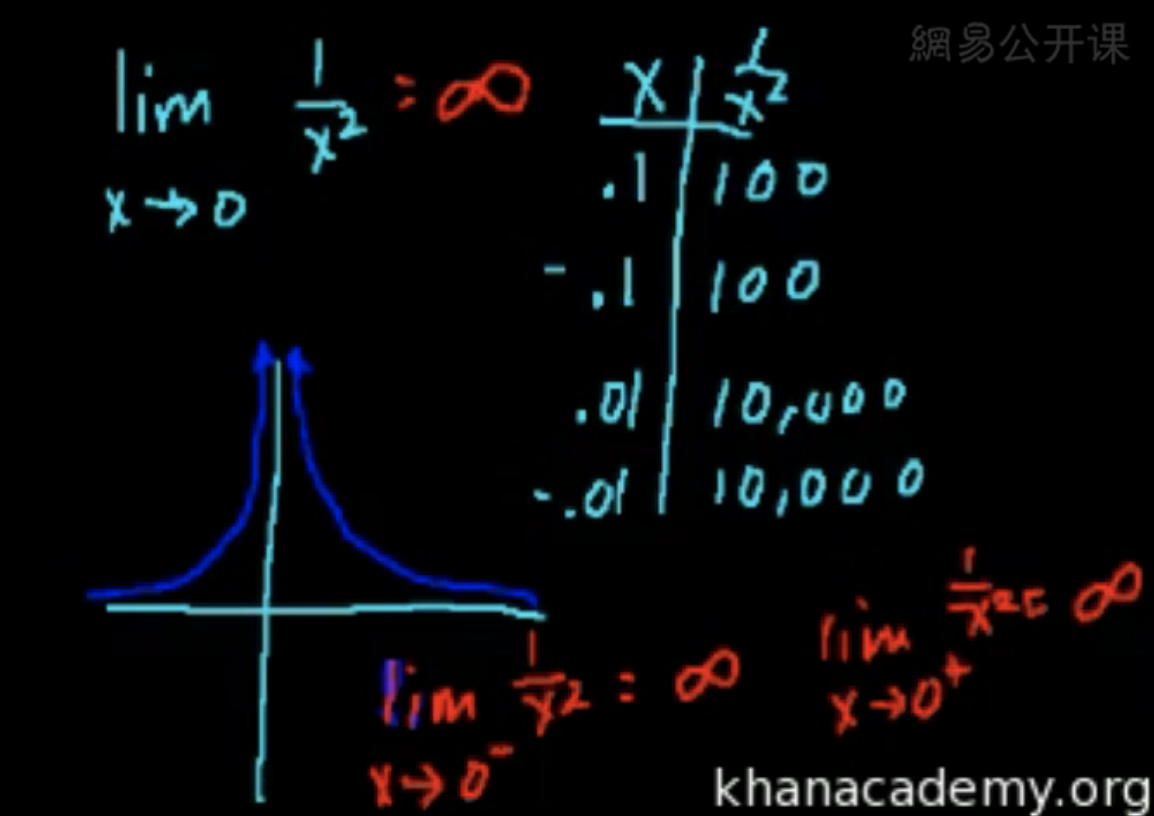 網易公开课
lim 1/x² = ∞
x→0
x | 1/x²
.1 | 100
-.1 | 100
.01 | 10,000
-.01 | 10,000
lim 1/x² = ∞
x→0⁻
lim 1/x² = ∞
x→0⁺
khanacademy.org